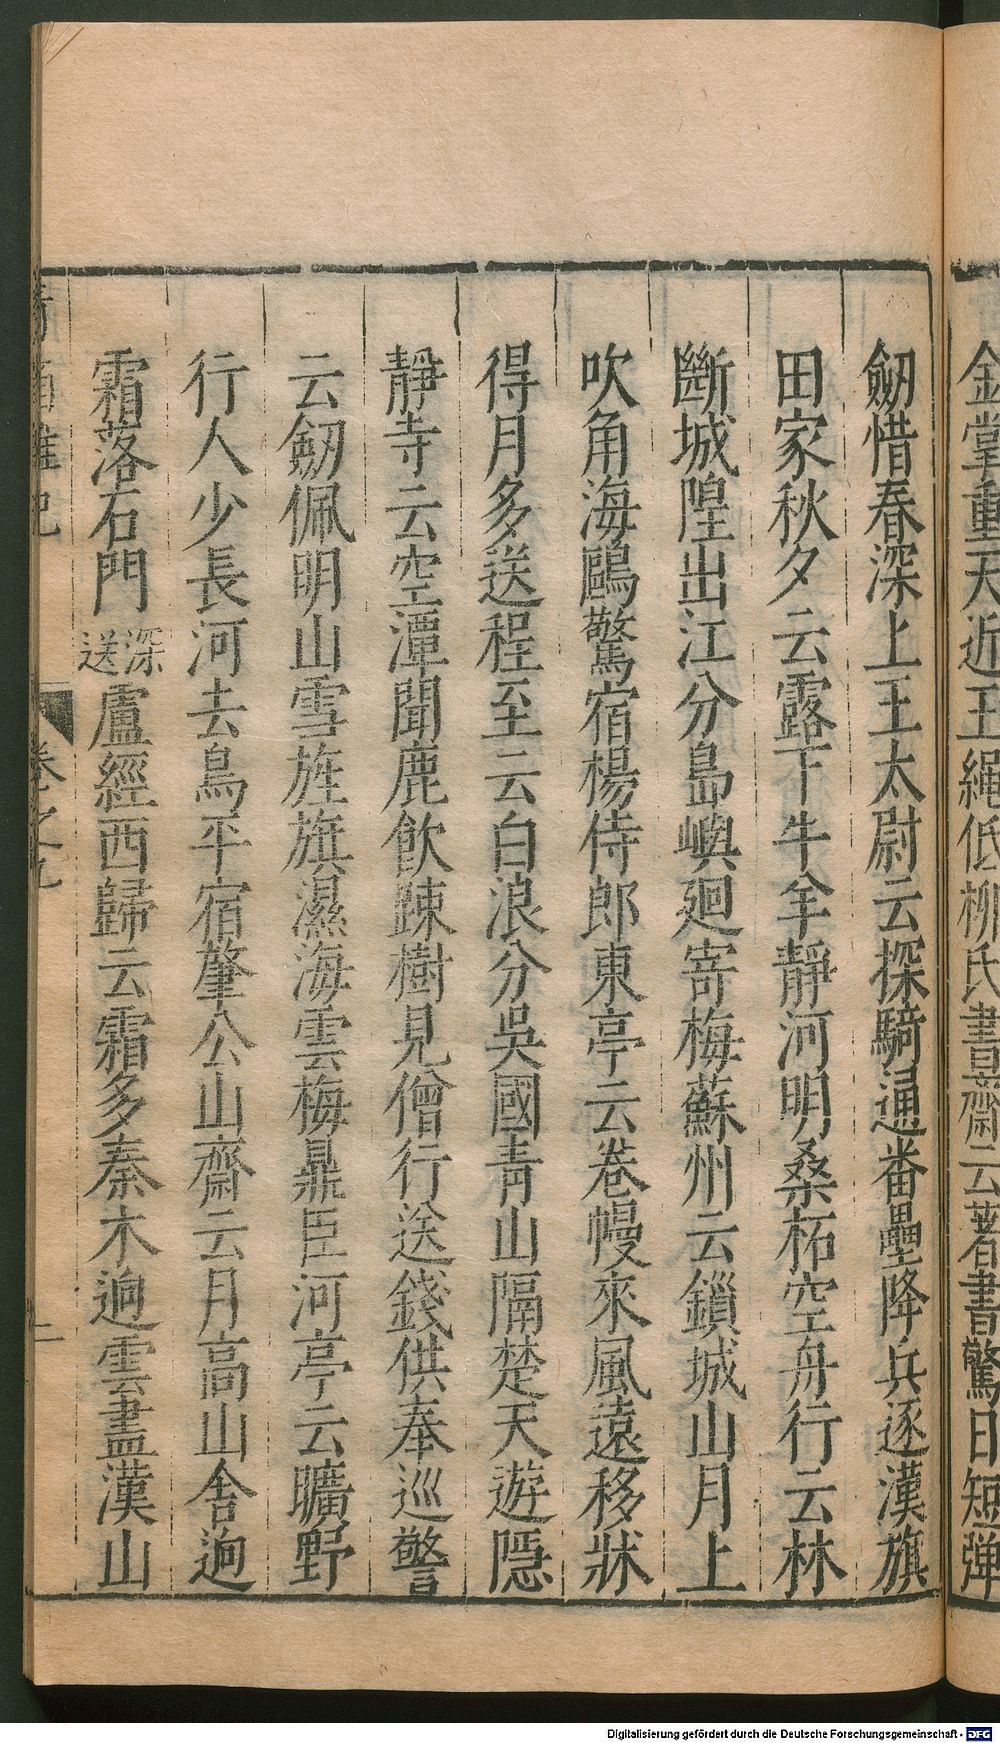 金掌重天近玉繩低柳氏書齋云著書驚日短彈
劒惜春深上王太尉云探騎通番壘降兵逐漢旗
田家秋夕云露下牛羊靜河明桑柘空舟行云林
斷城隍出江分島嶼廻寄梅蘇州云鎖城山月上
吹角海鷗驚宿楊侍郎東亭云卷幔來風遠移牀
得月多送程至云白浪分吳國青山隔楚天遊隱
靜寺云空潭聞鹿飲踈樹見僧行送錢供奉巡警
云劒佩明山雪旌旗濕海雲梅鼎臣河亭云曠野
行人少長河去鳥平宿肇公山齋云月高山舍逈
霜落石門深送盧經西歸云霜多秦木逈雲盡漢山
青箱雜記
卷之九
二
Digitalisierung gefördert durch die Deutsche Forschungsgemeinschaft - DFG